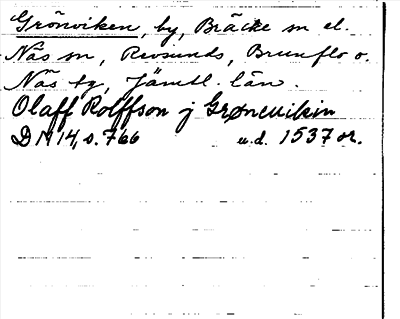 Grönviken, by, Bräcke sn el.
Näs sn, Revsunds, Brunflo o.
Näs tg, Jämtl. län.
Olaff Rolffson j Grønevikin
DN 14, s. 766 u.d. 1537 or.